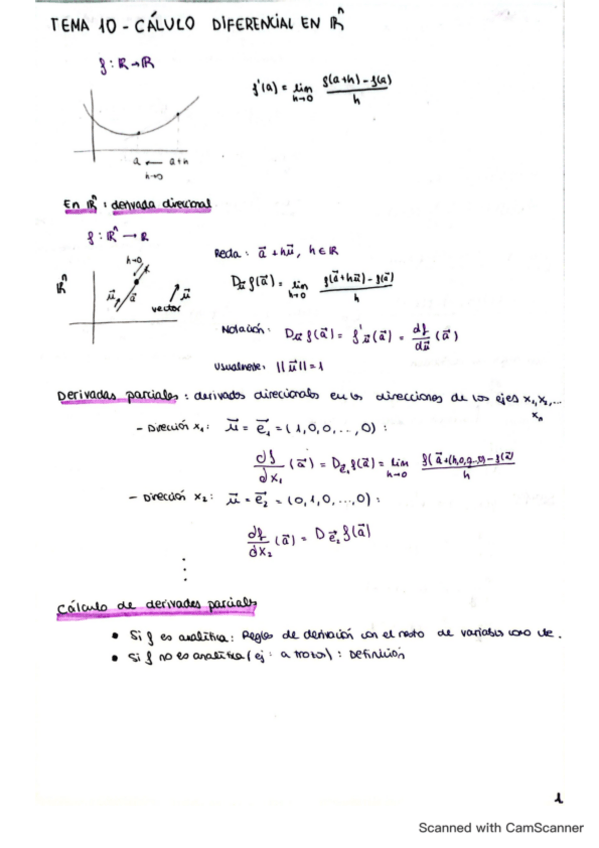 TEMA 10 - CÁLCULO DIFERENCIAL EN ℝⁿ
f : ℝ → ℝ
f'(a) = lim h→0 f(a+h) - f(a) / h
a ← a+h
h→0
En ℝⁿ : derivada direccional
f : ℝⁿ → ℝ
h→0
ℝⁿ
u⃗ a⃗ u⃗
vector
Recta : a⃗ + hu⃗, h ∈ ℝ
D_u⃗ f(a⃗) = lim h→0 f(a⃗+hu⃗) - f(a⃗) / h
Notación : D_u⃗ f(a⃗) = f'_u⃗(a⃗) = df/du⃗ (a⃗)
usualmente, ||u⃗|| = 1
Derivadas parciales : derivadas direccionales en las direcciones de los ejes x₁, x₂, ...
xₙ
- Dirección x₁ : u⃗ = e⃗₁ = (1,0,0,...,0) :
df/dx₁ (a⃗) = D_e⃗₁ f(a⃗) = lim h→0 f(a⃗+(h,0,0,...0)) - f(a⃗) / h
- Dirección x₂ : u⃗ = e⃗₂ = (0,1,0,...,0) :
df/dx₂ (a⃗) = D e⃗₂ f(a⃗)
Cálculo de derivadas parciales
• Si f es analítica : Reglas de derivación con el resto de variables como cte.
• Si f no es analítica (ej : a trozos) : Definición
1
Scanned with CamScanner